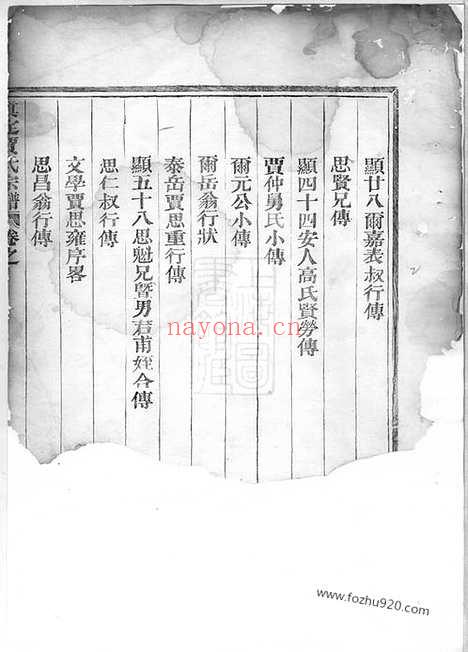 顯廿八爾嘉表叔行傳
思賢兄傳
顯四十四安人高氏賢勞傳
賈仲勇氏小傳
爾元公小傳
爾岳翁行狀
泰岳賈思重行傳
顯五十八思魁兄暨男君甫姪合傳
思仁叔行傳
文學賈思雍序畧
思昌翁行傳
賈氏宗譜
卷之
nayona.cn
www.fozhu920.com